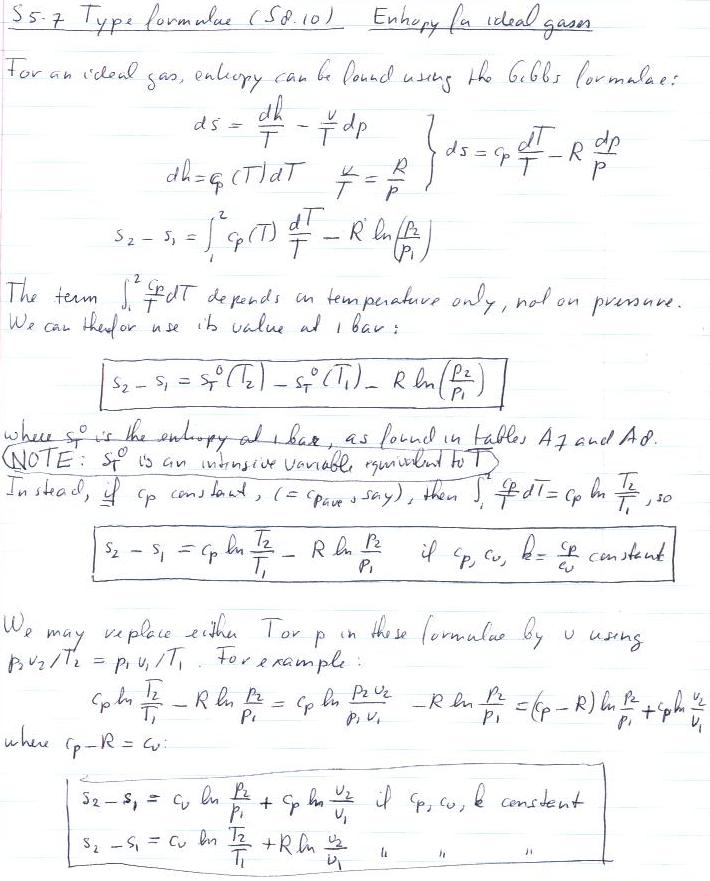 S5.7 Type formulae (S8.10) Entropy for ideal gases
For an ideal gas, entropy can be found using the Gibbs formulae:
ds = dh/T - v/T dp
dh = cp(T)dT v/T = R/p } ds = cp dT/T - R dp/p
s2 - s1 = ∫₁² cp(T) dT/T - R ln(p2/p1)
The term ∫₁² cp/T dT depends on temperature only, not on pressure.
We can therfor use its value at 1 bar:
s2 - s1 = sT°(T2) - sT°(T1) - R ln(p2/p1)
where sT° is the entropy at 1 bar, as found in tables A7 and A8.
NOTE: sT° is an intensive variable equivalent to T
Instead, if cp constant, (= cpave, say), then ∫₁² cp/T dT = cp ln T2/T1, so
s2 - s1 = cp ln T2/T1 - R ln p2/p1 if cp, cv, k = cp/cv constant
We may replace either T or p in these formulae by v using
p2v2/T2 = p1v1/T1. For example:
cp ln T2/T1 - R ln p2/p1 = cp ln p2v2/p1v1 - R ln p2/p1 = (cp - R) ln p2/p1 + cp ln v2/v1
where cp - R = cv:
s2 - s1 = cv ln p2/p1 + cp ln v2/v1 if cp, cv, k constant
s2 - s1 = cv ln T2/T1 + R ln v2/v1 " " "